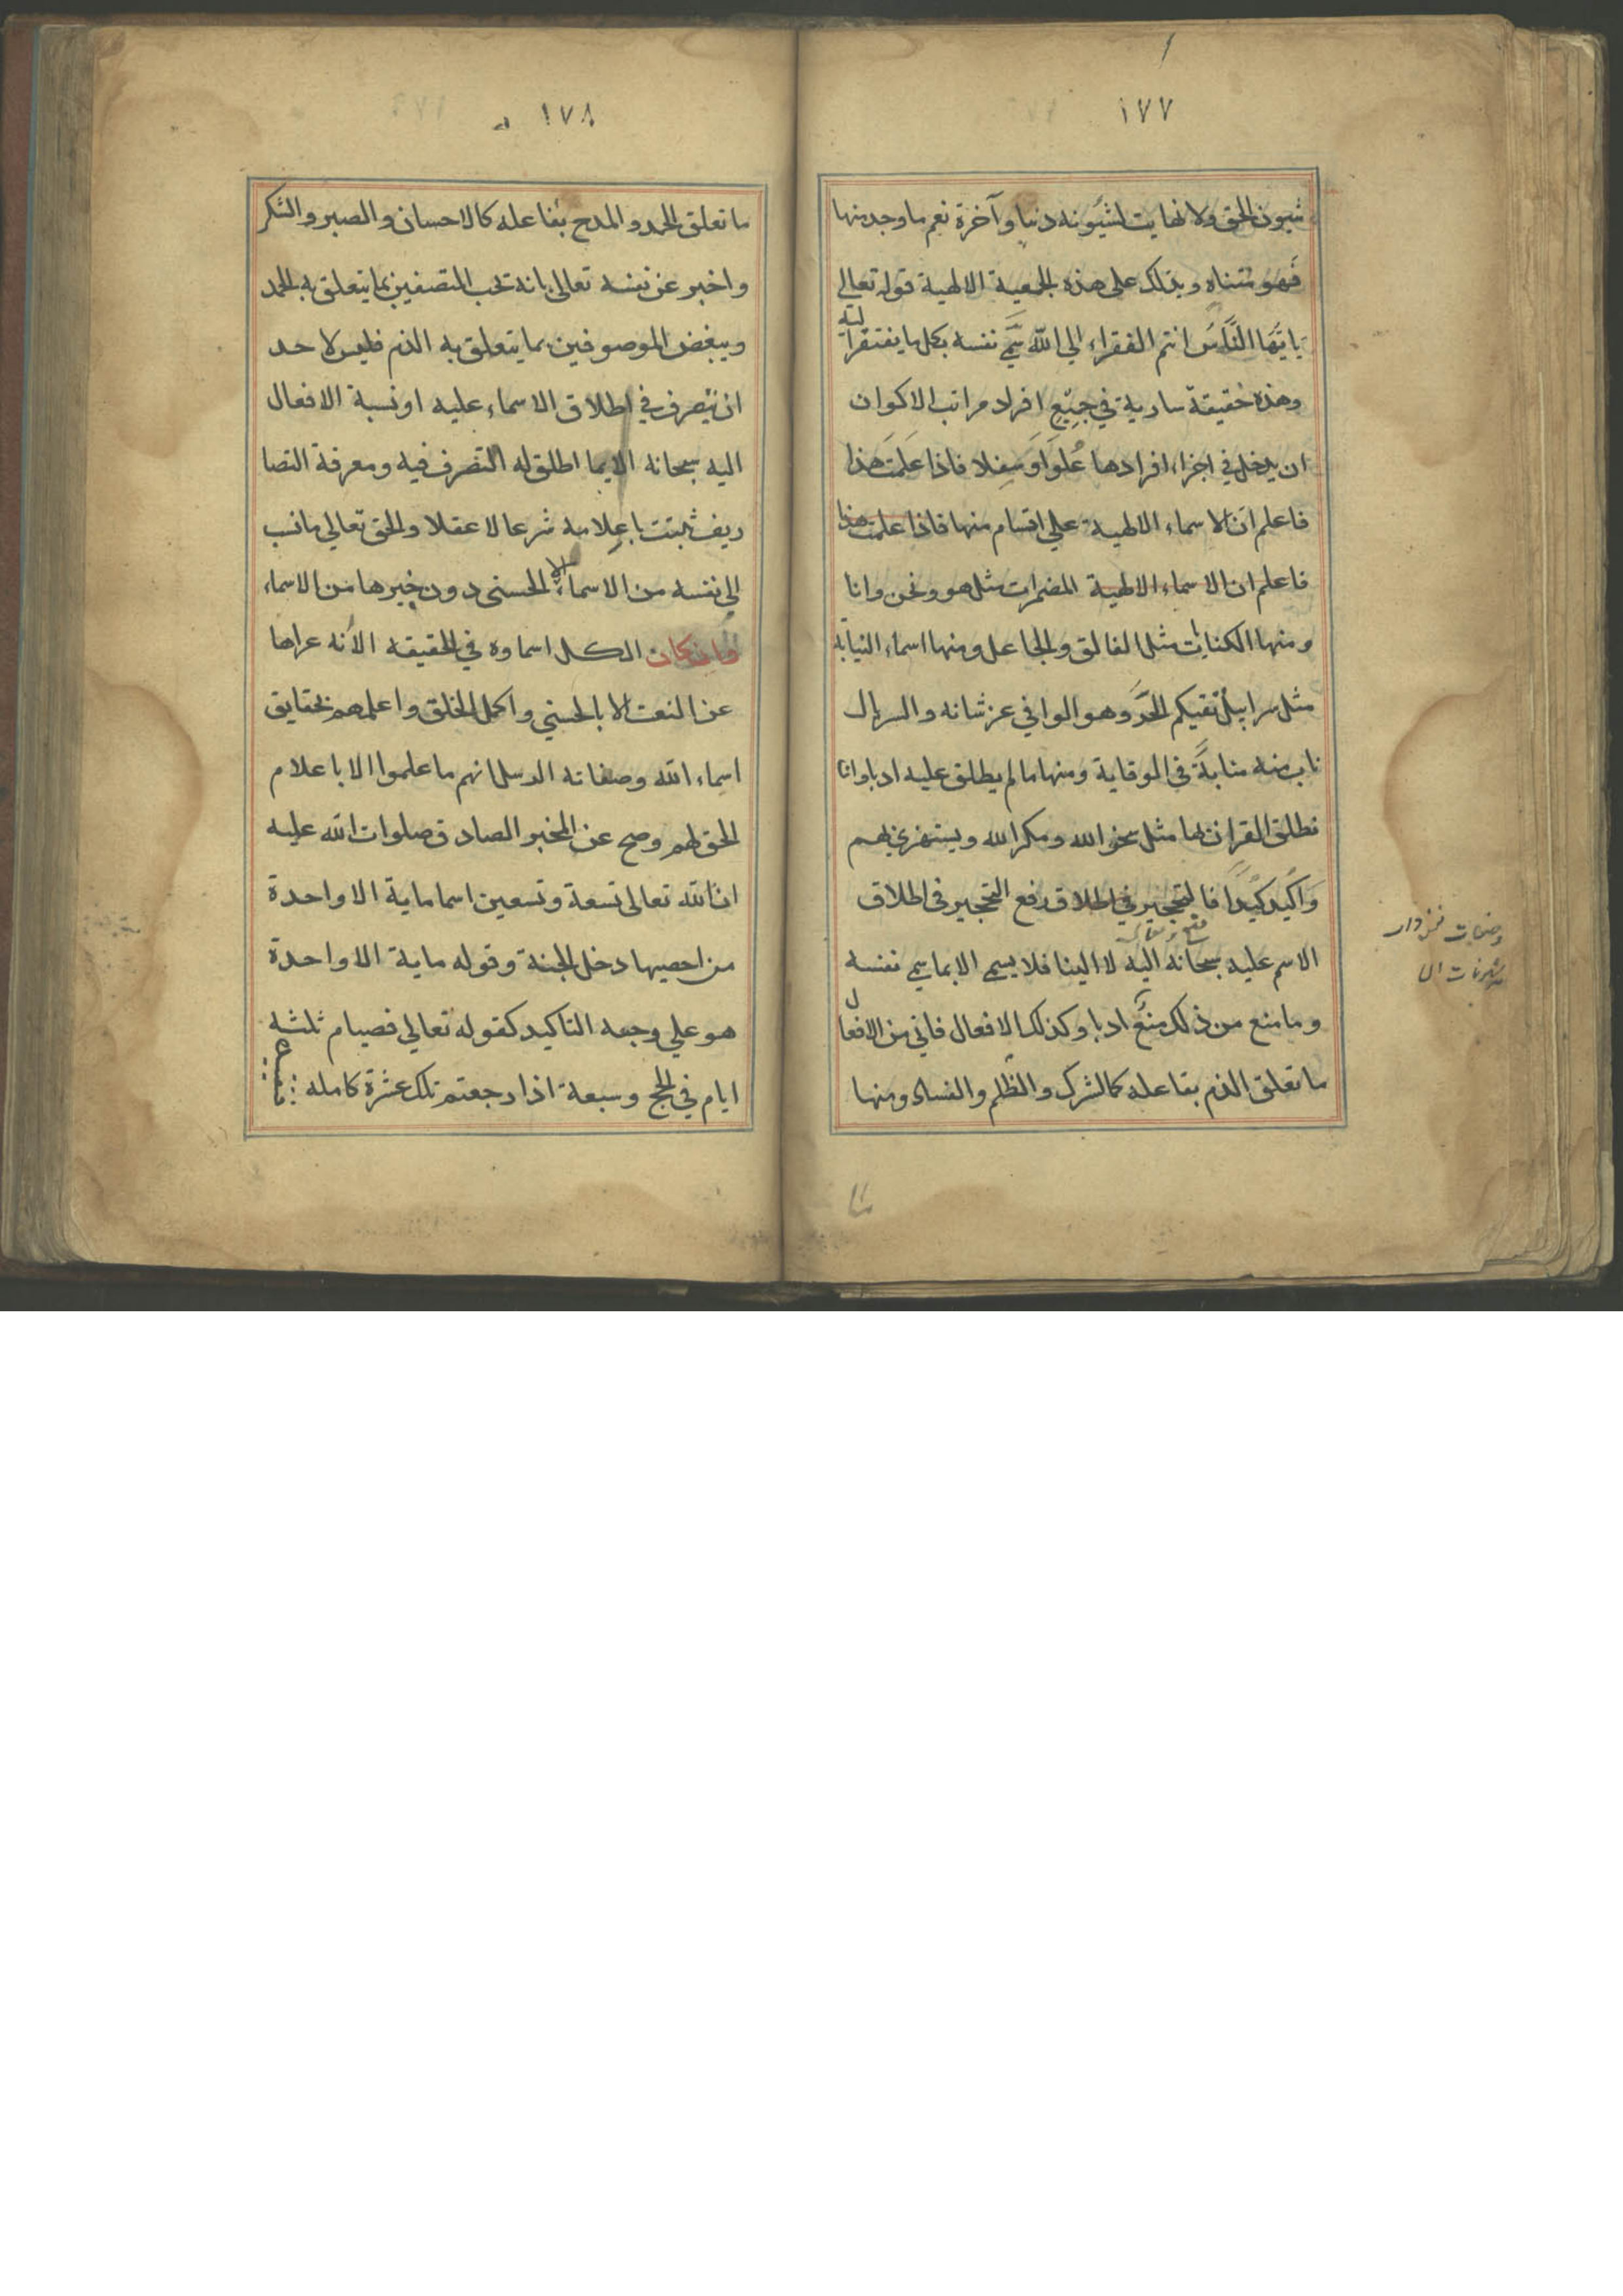 ١٧٧
شيون الحق ولا نهايت لشيونه دنيا وآخرة نعم ما وجد منها
فهو متناه ويدلك على هذه الجمعية الالهية قوله تعالي
يا ايها الناس انتم الفقراء الي الله سمي نفسه بكل ما يفتقر اليه
وهذه حقيقة سارية في جميع افراد مراتب الاكوان
ان يدخل في اجزاء افرادها علوا وسفلا فاذا علمت هذا
فاعلم ان الاسماء الالهية علي اقسام منها فاذا علمت هذا
فاعلم ان الاسماء الالهية المضمرات مثل هو ونحن وانا
ومنها الكنايات مثل الفالق والجاعل ومنها اسماء النيابة
مثل سرابيل تقيكم الحر وهو الوافي عز شانه والسربال
ناب منه منابة في الوقاية ومنها ما لم يطلق عليه ادبا وانا
نطلق القران بها مثل سخر الله ومكر الله ويستهزئ بهم
واكيد كيدا فالتحجير في اطلاق رفع التحجير في اطلاق
الاسم عليه سبحانه اليه لا الينا فلا يسمي الا بما سمي نفسه
وما منع من ذلك منع ادبا وكذلك الافعال فاني من الافعال
ما تعلق الذم بفاعله كالشرك والظلم والفساد ومنها
١٧٨
ما تعلق الحمد والمدح بفاعله كالاحسان والصبر والشكر
واخبر عن نفسه تعالى بانه تحب المتصفين بما يتعلق به الحمد
ويبغض الموصوفين بما يتعلق به الذم فليس لاحد
ان يتصرف في اطلاق الاسماء عليه او نسبة الافعال
اليه سبحانه الا بما اطلق له التصرف فيه ومعرفة التصا
ريف ثبتت باعلامه شرعا لا عقلا والحق تعالي ما نسب
الي نفسه من الاسماء الا الحسني دون غيرها من الاسماء
وان كان الكل اسماوه في الحقيقه الا انه عراها
عن النعت الا بالحسني واكمل الخلق واعلمهم بحقايق
اسماء الله وصفاته الرسل انهم ما علموا الا باعلام
الحق لهم وصح عن المخبر الصادق صلوات الله عليه
ان لله تعالى تسعة وتسعين اسما ماية الا واحدة
من احصيها دخل الجنة وقوله ماية الا واحدة
هو علي وجه التاكيد كقوله تعالي فصيام ثلثه
ايام في الحج وسبعة اذا رجعتم تلك عشرة كامله